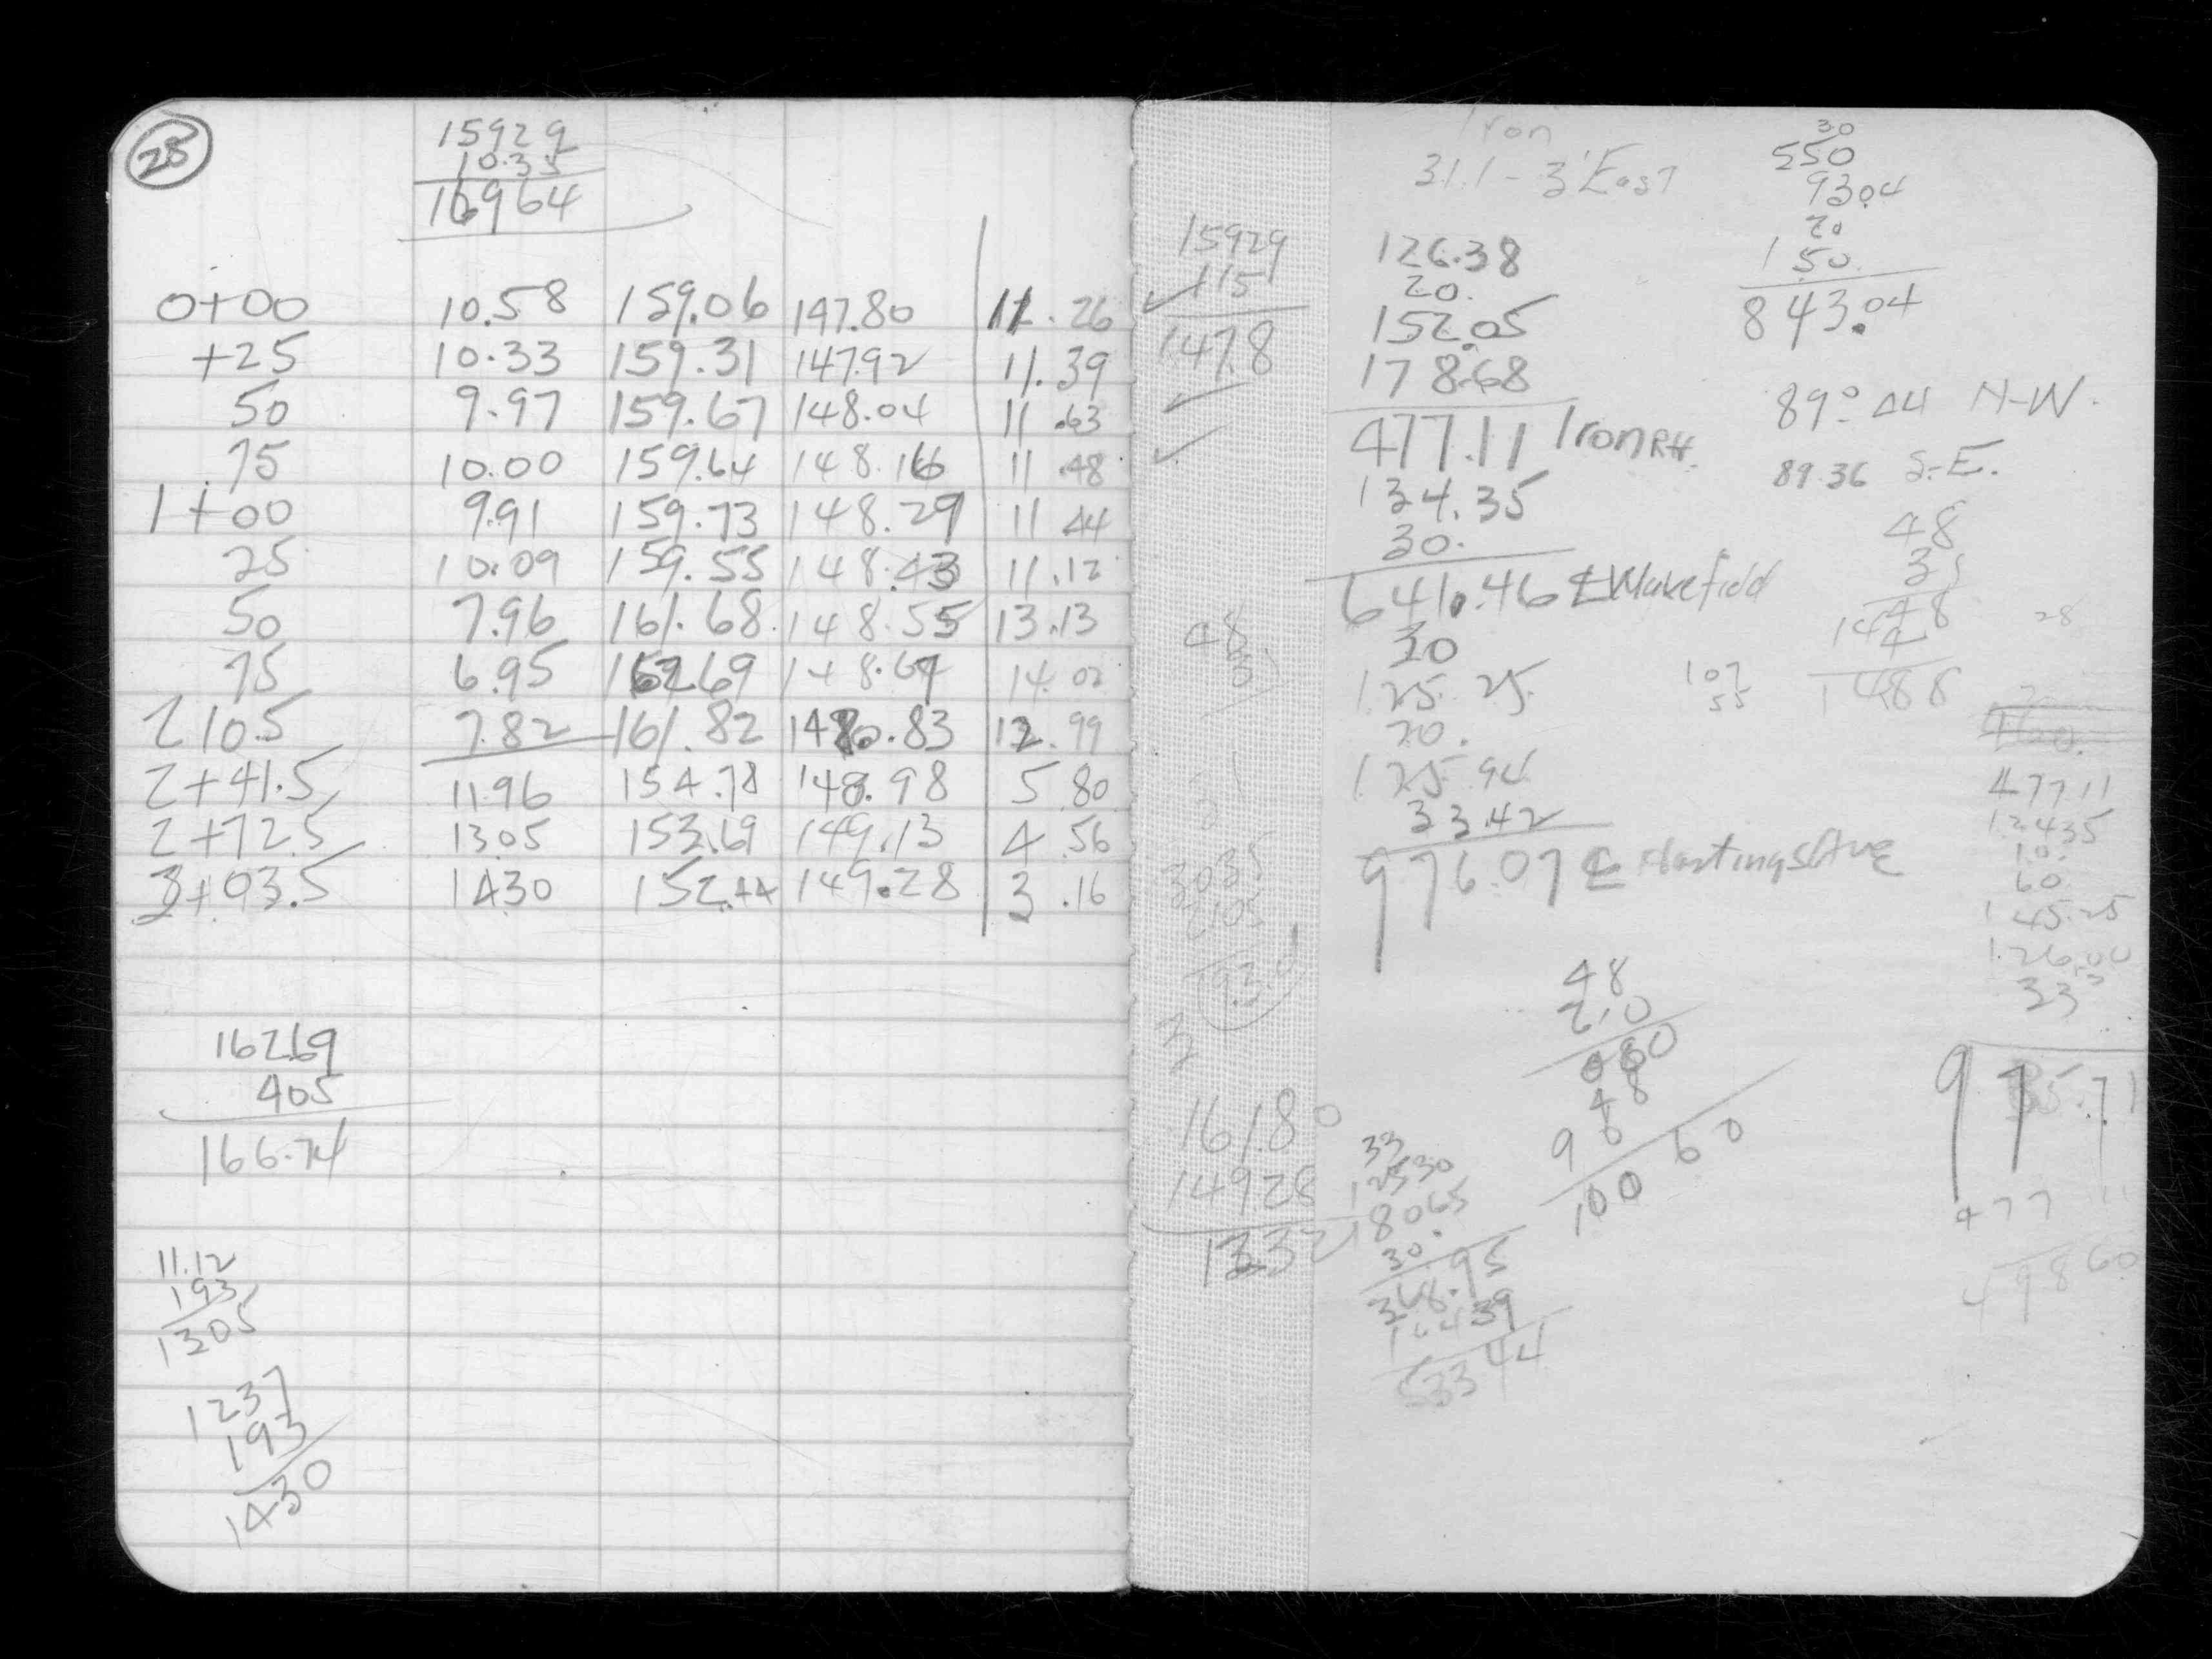 25
15929
10.35
16964
0+00 10.58 159.06 147.80 11.26
+25 10.33 159.31 147.92 11.39
50 9.97 159.67 148.04 11.63
75 10.00 159.64 148.16 11.48
1+00 9.91 159.73 148.29 11 44
25 10.09 159.55 148.43 11.12
50 7.96 161.68 148.55 13.13
75 6.95 16269 148.67 14.02
210.5 7.82 161.82 148.83 12.99
2+41.5 11.96 154.78 148.98 5 80
2+72.5 13.05 153.69 149.13 4 56
3+03.5 1430 152.44 149.28 3.16
16269
405
166.74
11.12
193
1305
1237
193
1430
15929
1151
1478
48
3035
2105
93.0
3
16180
14928
1332
Iron
31.1 - 3' East
126.38
20.
152.05
178.68
477.11 Iron RH.
134.35
30.
641.46 ℄ Wakefield
30
125.25
20.
125.94
33.42
976.07 ℄ Hastings Ave
30
550
9304
20
150
843.04
89° 44 N-W.
89.36 S-E.
48
31
48
144
1488
28
107
55
477 11
12435
10.
60
145.25
126.00
33
477
49860
48
2.0
080
48
96
100 60
33
12530
18065
30.
368.95
16439
53344